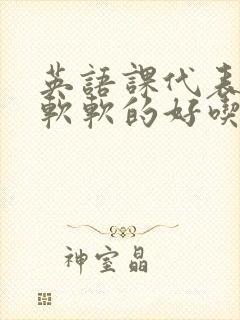 英語課代表
軟軟的好喫
神室晶